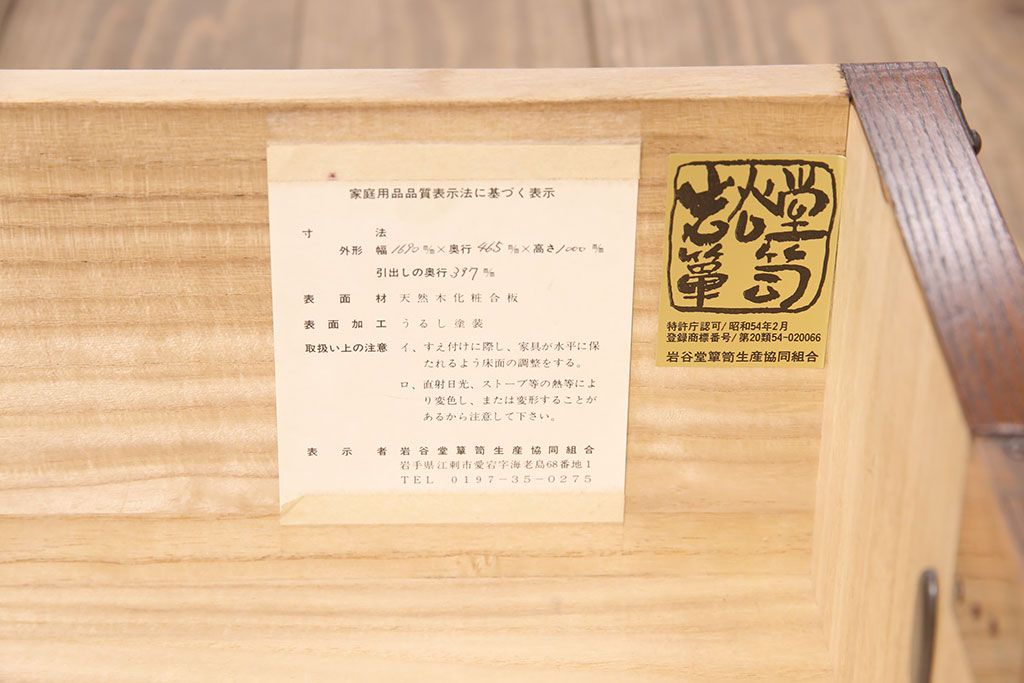 家庭用品品質表示法に基づく表示
寸法
外形 幅1690㎜×奥行465㎜×高さ1000㎜
引出しの奥行397㎜
表面材 天然木化粧合板
表面加工 うるし塗装
取扱い上の注意 イ、すえ付けに際し、家具が水平に保
たれるよう床面の調整をする。
ロ、直射日光、ストーブ等の熱等によ
り変色し、または変形することが
あるから注意して下さい。
表示者 岩谷堂簞笥生産協同組合
岩手県江刺市愛宕字海老島68番地1
TEL 0197-35-0275
岩谷堂
簞笥
特許庁認可/昭和54年2月
登録商標番号/第20類54-020066
岩谷堂簞笥生産協同組合